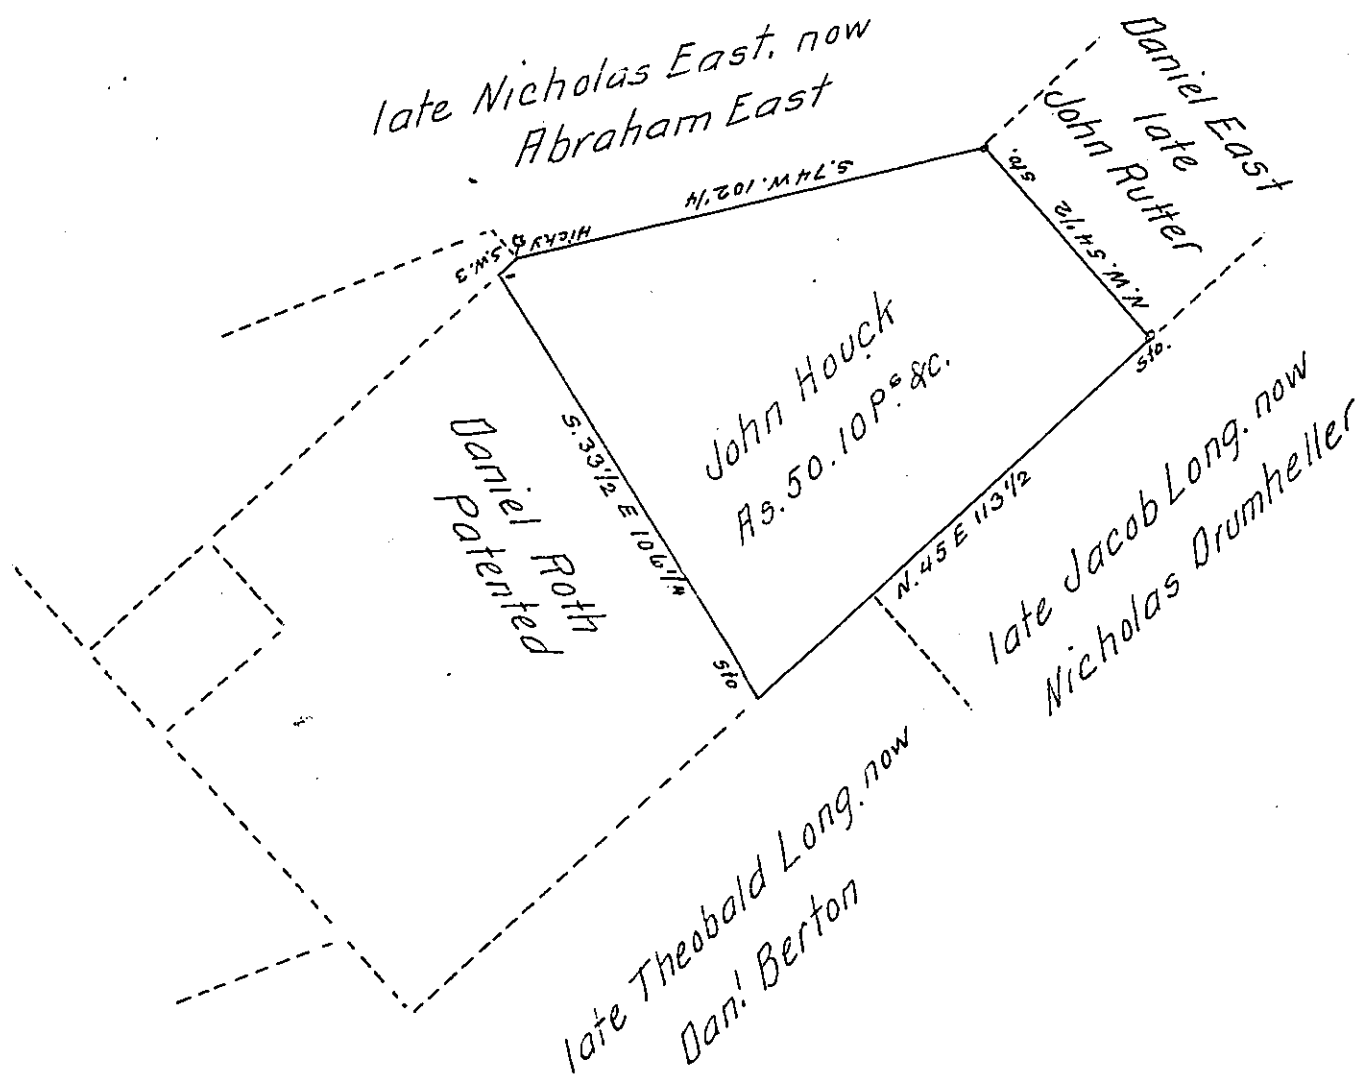 late Nicholas East. now
Abraham East
Daniel East
late
John Rutter
S. 74 W. 102 1/4
Hicky
S.W. 3
sto.
N.W. 54 1/2
sto.
John Houck
As. 50. 10 Ps. &c.
S. 33 1/2 E 106 1/4
sto
N. 45 E 113 1/2
Daniel Roth
Patented
late Jacob Long. now
Nicholas Drumheller
late Theobald Long. now
Danl Berton